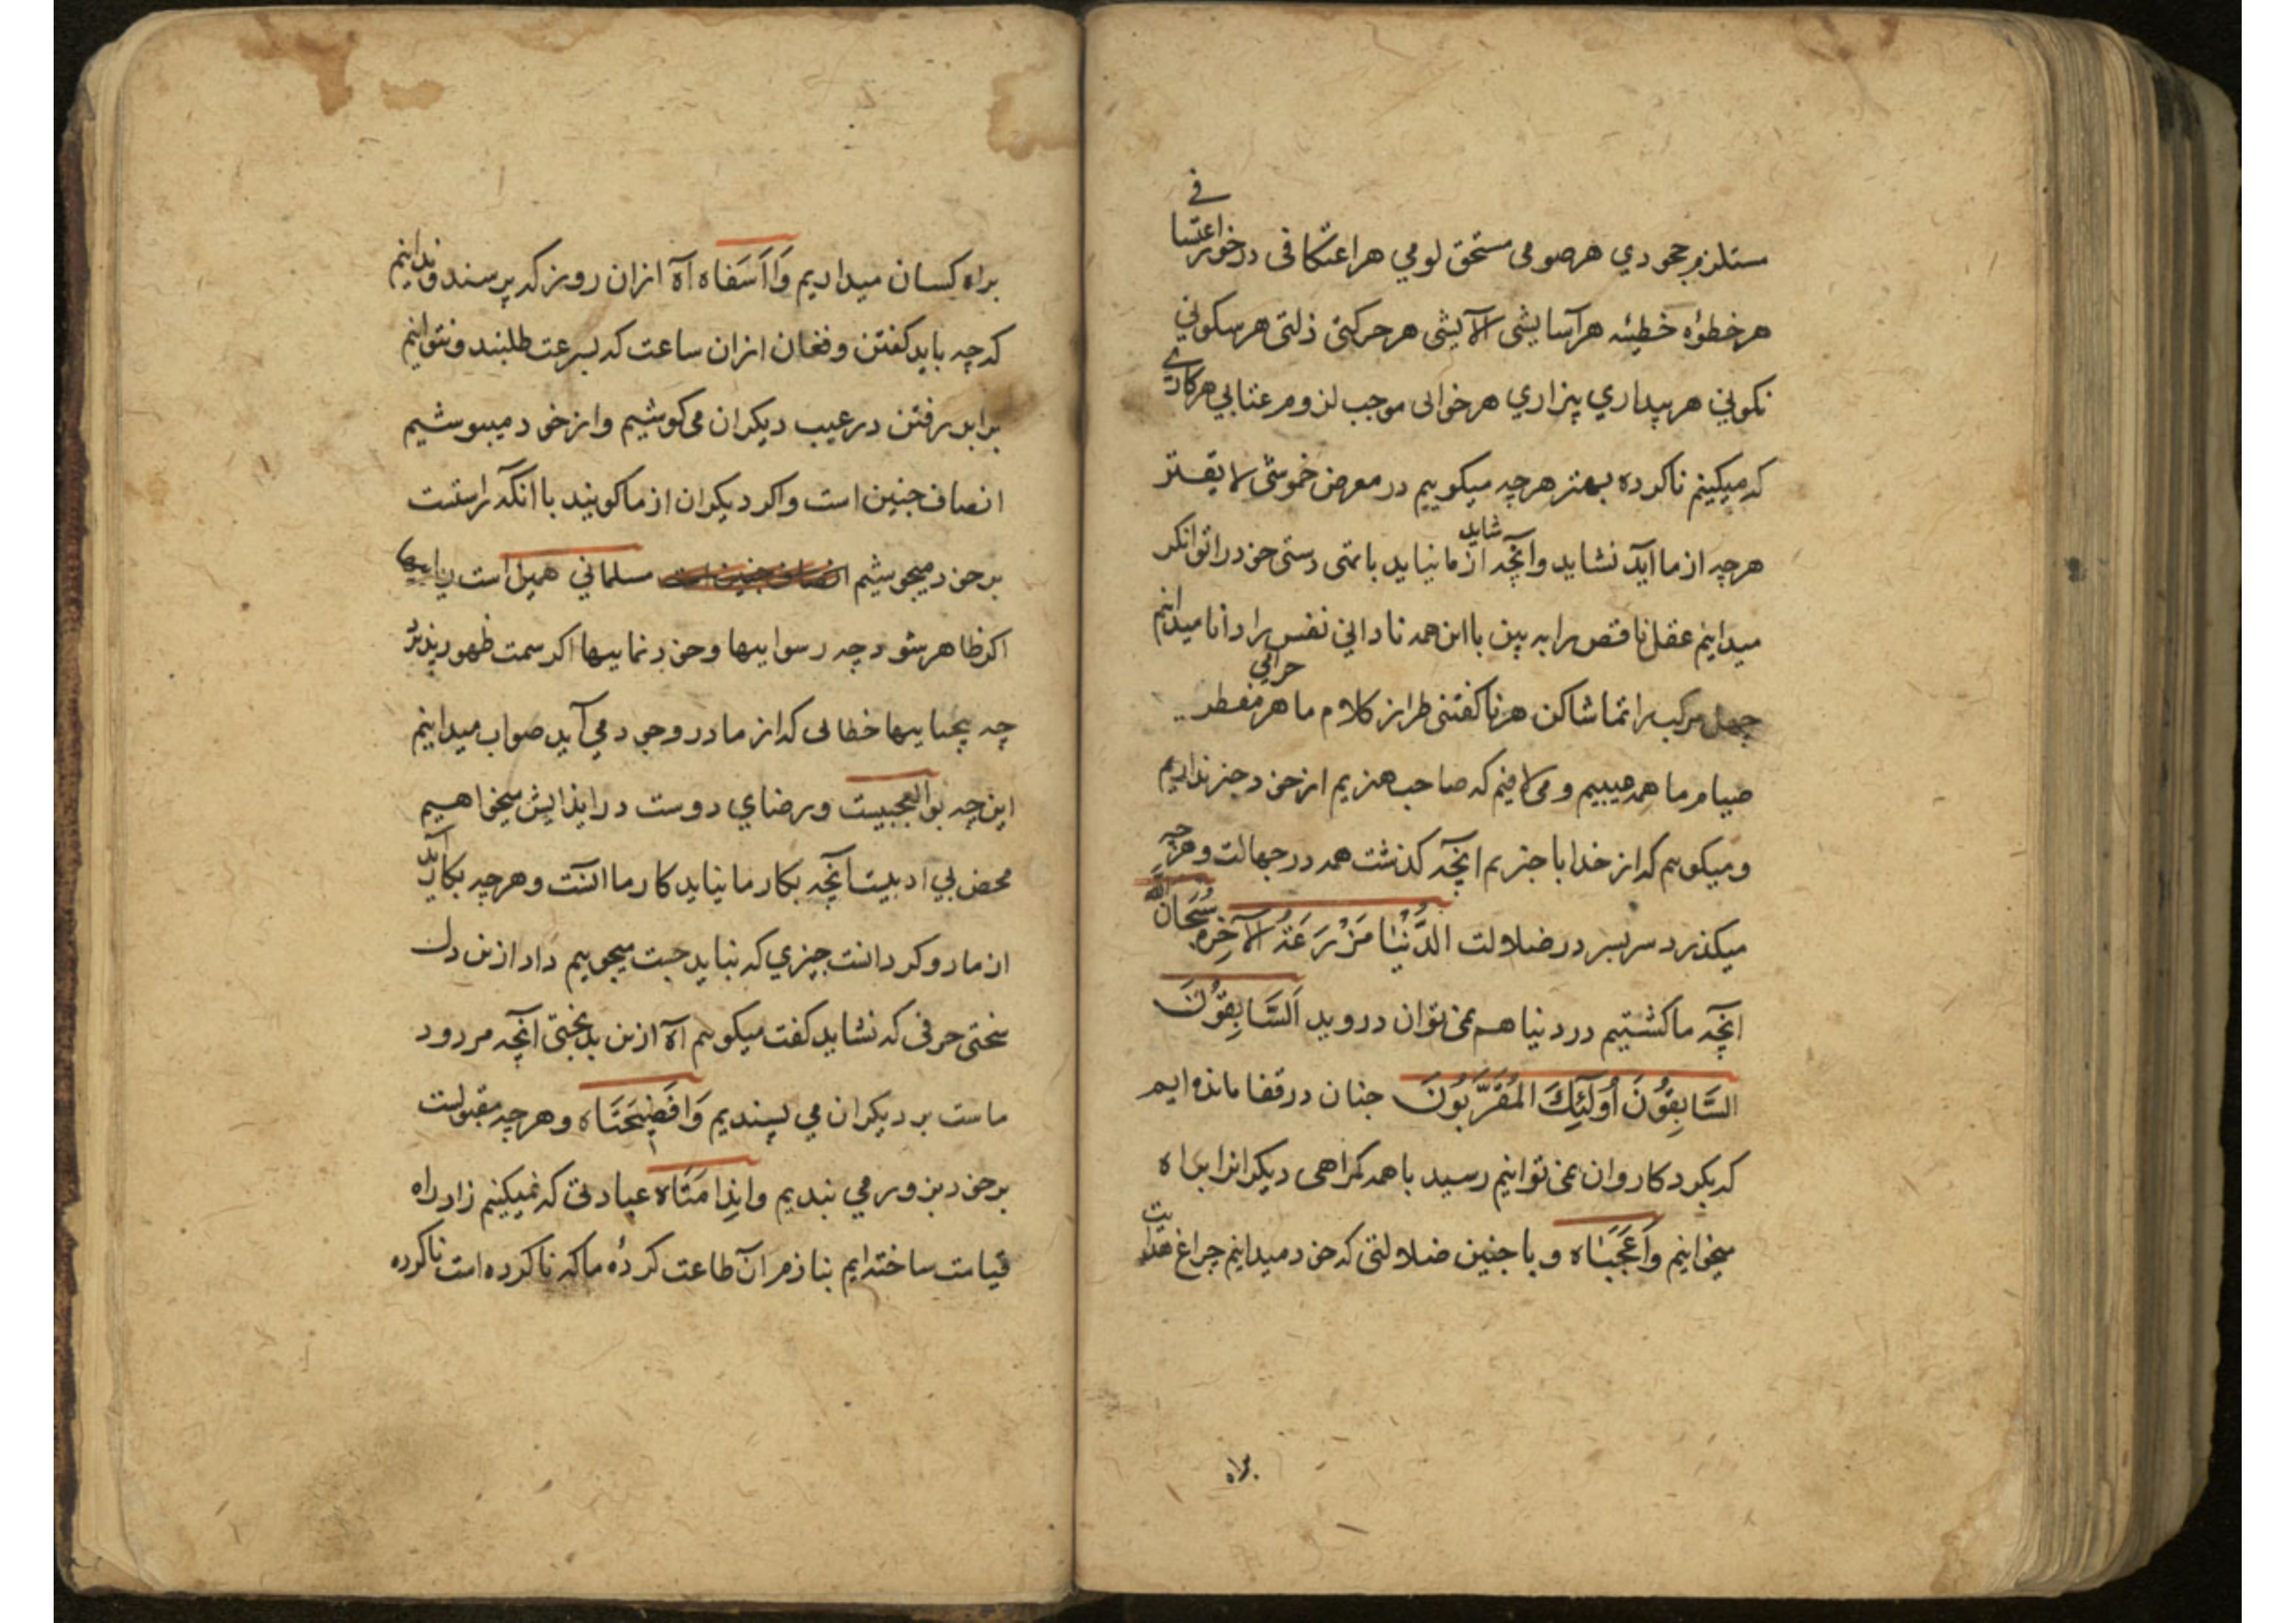 مستلزم جحودي هر صومی مستحق لومي هر اعتکافی درخور اعتسافے
هر خطوهٔ خطیئه هر آسایشی آلایشی هر حرکتی ذلتی هر سکونی
نکونی هر بیداري بیزاري هر خوابی موجب لزوم عتابي هر کارے
که میکینم ناکرده بهتر هرچه میکوییم در معرض خموشی لا یقتر
هرچه از ما آید نشاید و آنچه شاید از ما نیاید با تهی دستی خود را توانکر
میداینم عقل ناقص را به بین با این همه نادانی نفس را دانا میداینم
جهل مرکب را تماشا کن هر ناکفتنی طراز کلام ما هر حرامی مفطر
صیام ما همه عیبیم و می لافیم که صاحب هنریم از خود خبر نداریم
و میکویم که از خدا با خبریم آنچه کذشت همه در جهالت و هرچه
میکذرد سربسر در ضلالت الدُّنْیَا مَزْرَعَةُ الْآخِرَةِ سُبْحَانَ اللّٰه
آنچه ما کشتیم در دنیا هم نمی توان دروید اَلسَّابِقُوْنَ
السَّابِقُوْنَ اُولٓئِكَ الْمُقَرَّبُوْنَ جنان در قفا مانده ایم
که بکرد کاروان نمی تواینم رسید با همه کمراهی دیکرانرا براه
میخواینم وَاعَجَبَاه و با جنین ضلالتی که خود میداینم چراغ هدایت
براه
براه کسان میداریم وَااَسَفَاه آه ازان روز که پرسند و نداینم
که چه باید کفتن و فغان ازان ساعت که بسرعت طلبند و نتواینم
برابر رفتن در عیب دیکران می کوشیم و از خود میپوشیم
انصاف جنین است و اکر دیکران از ما کویند با آنکه راستست
بر خود میجوشیم انصاف جنین است مسلمانی همین است ریاییها
اکر ظاهر شود چه رسواییها و خود نماییها اکر سمت ظهور پذیرد
چه بیحیاییها خطائی که از ما در وجود می آید صواب میداینم
این چه بوالعجبیست و رضاي دوست در ایذایش میخواهیم
محض بي ادبیست آنچه بکار ما نیاید کار ما آنست و هرچه بکار آید
از ما رو کردانست چیزي که نباید جست میجوییم داد ازین دل
سختی حرفی که نشاید کفت میکویم آه ازین بدبختی آنچه مردود
ماست بر دیکران می پسندیم وَافَضِیْحَتَاه و هرچه مقبولست
بر خود بزور می بندیم وانِدَامَتَاه عبادتی که نمیکینم زاد راه
قیامت ساخته ایم بنازم آن طاعت کردهٔ ما که ناکرده است ناکرده